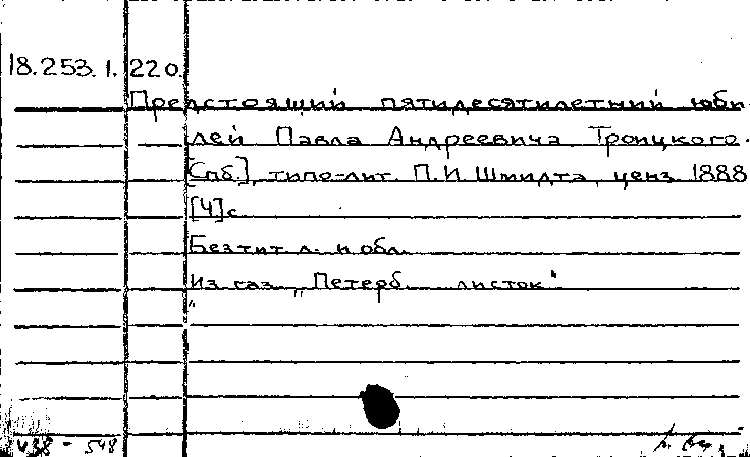 18.253.1.220.
Предстоящий пятидесятилетний юби-
лей Павла Андреевича Троицкого.
[Спб.], типо-лит. П.И. Шмидта, ценз. 1888
[4] с.
Без тит. л. и обл.
Из газ. „Петерб. листок"
438 - 548